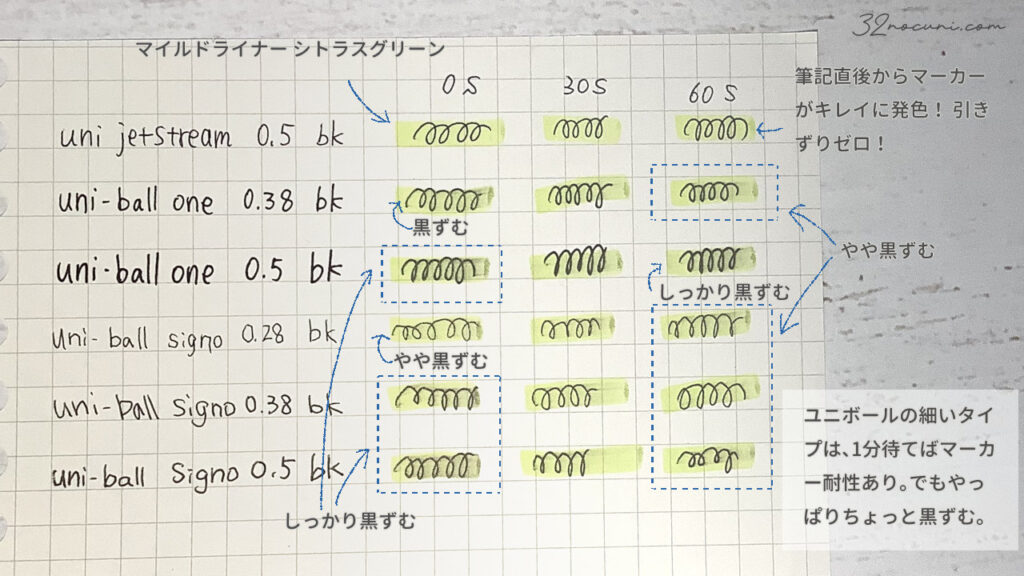 32nocuni.com
マイルドライナー シトラスグリーン
0S 30S 60S
筆記直後からマーカー
がキレイに発色！ 引き
ずりゼロ！
uni jetstream 0.5 bk
uni-ball one 0.38 bk
黒ずむ
やや黒ずむ
uni-ball one 0.5 bk
しっかり黒ずむ
uni-ball signo 0.28 bk
やや黒ずむ
uni-ball signo 0.38 bk
uni-ball signo 0.5 bk
しっかり黒ずむ
ユニボールの細いタイ
プは、1分待てばマーカ
ー耐性あり。でもやっ
ぱりちょっと黒ずむ。